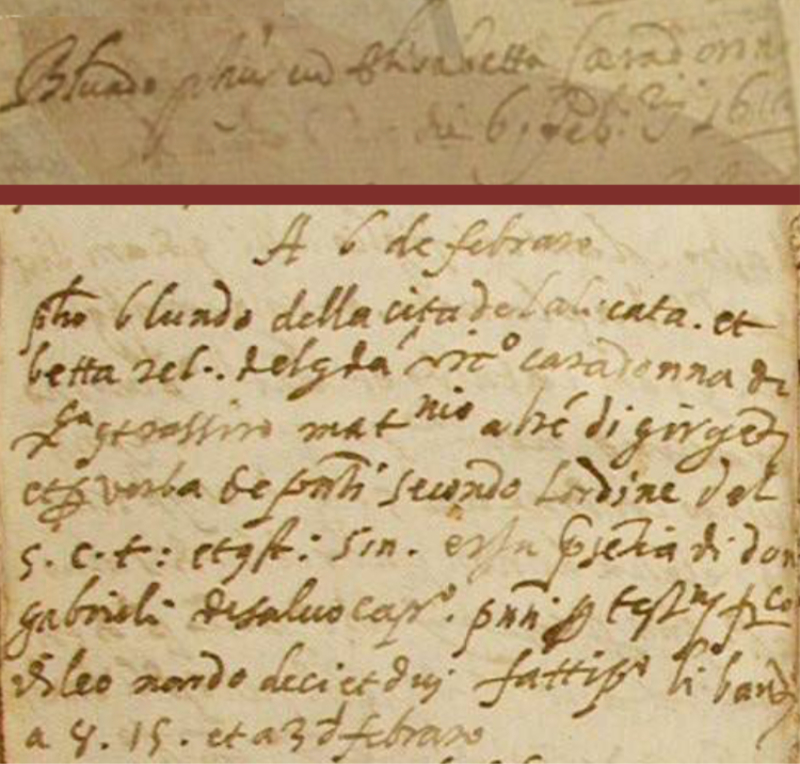 Blundo phūs cū Elisabetta Caradonna
di 6, feb. 3ij 161
A 6 de febraro
pho blundo della cita de lalicata. et
betta rel.. del qda vic° caradonna di
mat nio alrē di girgeti
et p verba de pnti secondo Lordine del
s. c. t: et gst: sin. psētia di don
gabrieli desalvo capo. pnti p testy frco
di leo nardo deci et duj fatti pi li bandi
a 8. 15. et a 3 d febraro